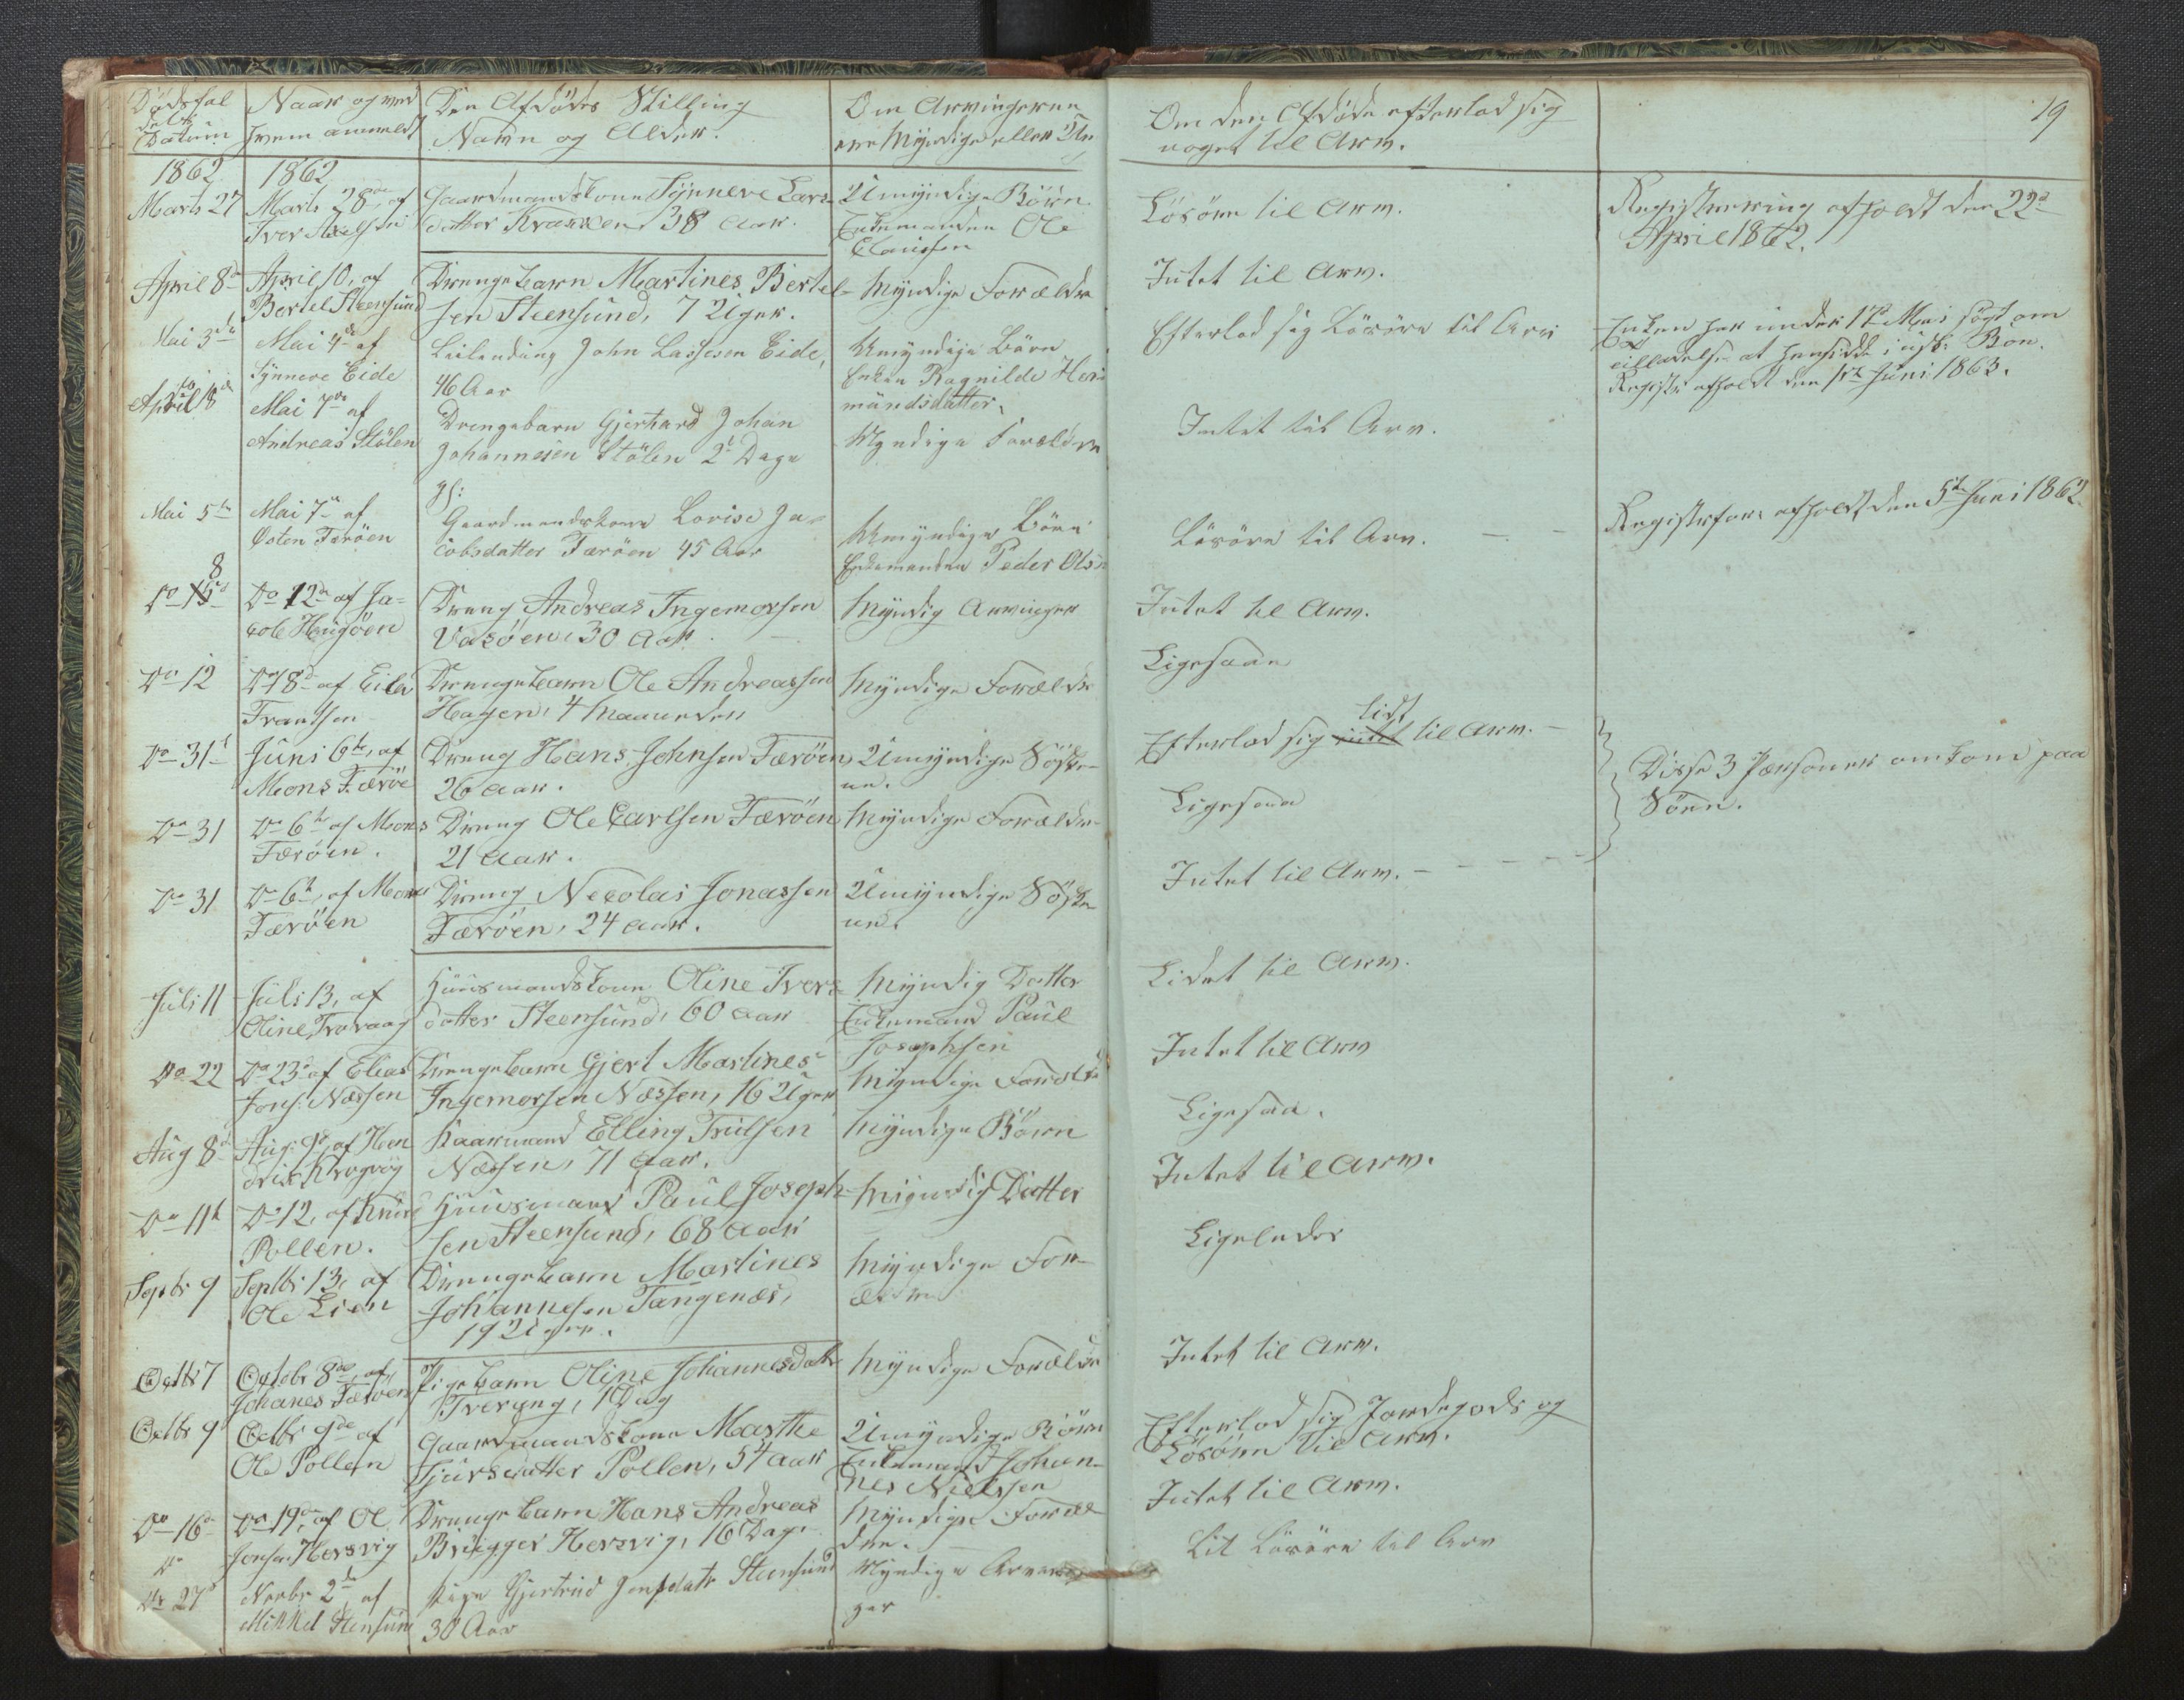 Dødsfal
dets
Datum
Naar og ved
hvem anmeldt
Den Afdødes Stilling
Navn og Alder.
Om Arvingerne
ere Myndige eller Um
Om den Afdøde efterlod sig
noget til Arv.
19
1862
Marts 27
1862
Marts 28de af
Iver
Gaardmandskone Synneve Lars-
datter Krakken 38 Aar.
Umyndige Børn
Enkemanden Ole
Claussen
Løsøre til Arv.
Registrering afholdt den 22d
April 1862.
April 8de
April 10, af
Bertel Steensund
Drengebarn Martines Bertel-
sen Steensund, 7 Uger.
Myndige Forældre
Intet til Arv.
Mai 3de
Mai 4de af
Synneve Eide
Leilending John Lassesen Eide,
46 Aar
Umyndige Børn
Enken Ragnilde Her-
mundsdatter.
Efterlod sig Løsøre til Arv
Enken har under 17de Mai søgt om
tilladelse at hensidde i uskr. Bon.
Registr. afholdt den 1ste Juni 1863.
April 18de
Mai 7de af
Andreas Stølen
Drengebarn Gjerhard Johan
Johannesen Stølen 2 Dage
Myndige Forældre
Intet til Arv.
Mai 5te
Mai 7de af
Østen Færøen
Gaardmandskone Lovise Ja-
cobsdatter Færøen 45 Aar
Umyndige Børn
Enkemanden Peder Olsen
Løsøre til Arv.
Registrfor. afholdt den 5te Juni 1862
8
Do 15d
Do 12de af Ja-
cob Haugøen
Dreng Andreas Ingemorsen
Vasøen, 30 Aar.
Myndig Arvinger
Intet til Arv.
Do 12
Do 18de af Eilev
Frantsen
Drengebarn Ole Andreassen
Hagen, 4 Maaneder
Myndige Forældre
Ligesaa
Do 31t
Juni 6te, af
Mons Færøe
Dreng Hans Johnsen Færøen,
26 Aar.
Umyndige Søsken-
ne.
Efterlod sig intet lidt til Arv.
Do 31
Do 6te af Mons
Færøen.
Dreng Ole Carlsen Færøen
21 Aar.
Myndige Forældre
Ligesaa
Disse 3 Personer omkom paa
Søen.
Do 31
Do 6te, af Mons
Færøen
Dreng Necolai Jonassen
Færøen, 24 Aar.
Umyndige Søsken-
ne.
Intet til Arv.
Juli 11
Juli 13, af
Oline Travaag
Huusmandskone Oline Ivers-
datter Steensund, 60 Aar
Myndig Datter
Enkemand Paul
Josephsen
Lidet til Arv.
Do 22
Do 23d af Elias
Jons. Næssen
Drengebarn Gjert Martines
Ingemorsen Næssen, 16 Uger
Myndige Forældre
Intet til Arv
Aug 8d
Aug. 9d, af Hen
drik Krogvog
Kaarmand Elling Trulsen
Næssen, 71 Aar.
Myndige Børn
Ligesaa.
Do 11t
Do 12, af Knud
Pollen.
Huusmand Paul Joseph-
sen Steensund, 68 Aar
Myndig Datter
Intet til Arv.
Septbr 9
Septbr 13, af
Ole Lien
Drengebarn Martines
Johannesen Tangenæs,
19 Uger.
Myndige For-
ældre
Ligeledes
Octbr 7
Octobr 8de, af
Johanes Færøen
Pigebarn Oline Johannesdatr
Tverang, 1 Dag
Myndige Forældre
Intet til Arv.
Octbr 9
Octbr 9de af
Ole Pollen
Gaardmandskone Marthe
Sjursdatter Pollen, 54 Aar
Umyndige Børn
Enkemand Johan-
nes Nielssen
Efterlod sig Jordegods og
Løsøre til Arv.
Do 16d
Do
Do 19d, af Ol
Jensen Hersvig
Drengebarn Hans Andreas
Brügger Hersvig, 16 Dage
Myndige Foræl
dre.
Intet til Arv.
Do 27d
Novbr 2de, af
Mikkel Stensund
Pige Gjertrud Jensdatr Steensund
30 Aar
Myndige Arvin-
ger
Lit Løsøre til Arv